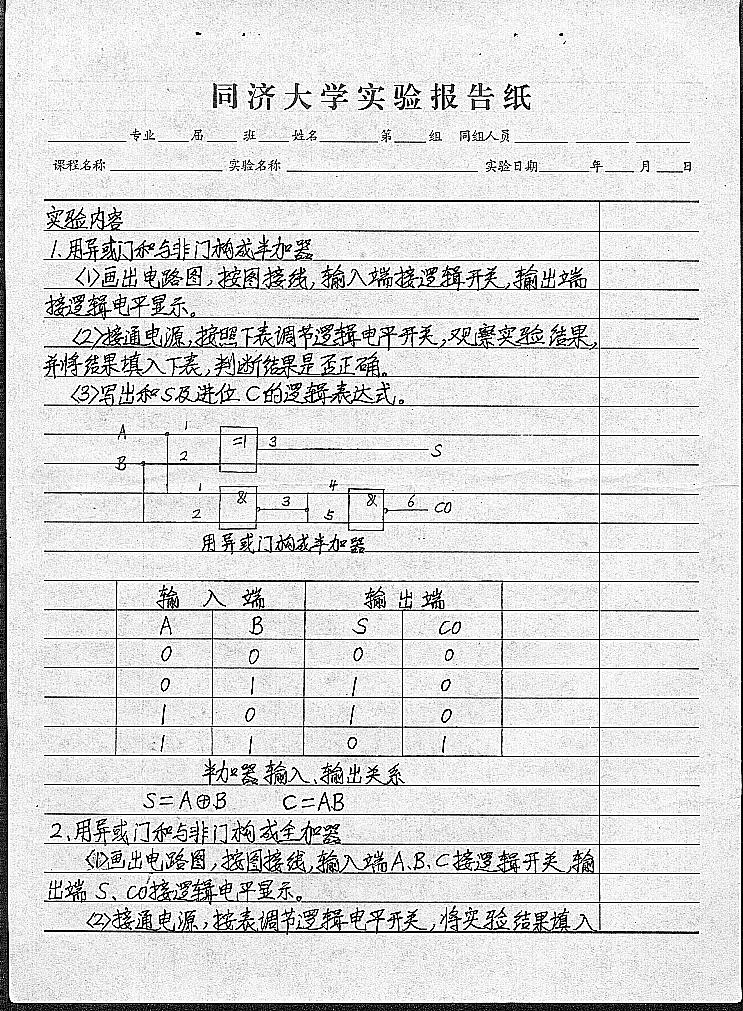 同济大学实验报告纸
专业 届 班 姓名 第 组 同组人员
课程名称 实验名称 实验日期 年 月 日
实验内容
1.用异或门和与非门构成半加器
(1)画出电路图,按图接线,输入端接逻辑开关,输出端
接逻辑电平显示。
(2)接通电源,按照下表调节逻辑电平开关,观察实验结果,
并将结果填入下表,判断结果是否正确。
(3)写出和S及进位C的逻辑表达式。
A 1 =1 3 S
B 2
1 & 3 4 & 6 CO
2 5
用异或门构成半加器
输入端 输出端
A B S CO
0 0 0 0
0 1 1 0
1 0 1 0
1 1 0 1
半加器输入、输出关系
S=A⊕B C=AB
2.用异或门和与非门构成全加器
(1)画出电路图,按图接线,输入端A、B、C接逻辑开关,输
出端S、CO接逻辑电平显示。
(2)接通电源,按表调节逻辑电平开关,将实验结果填入